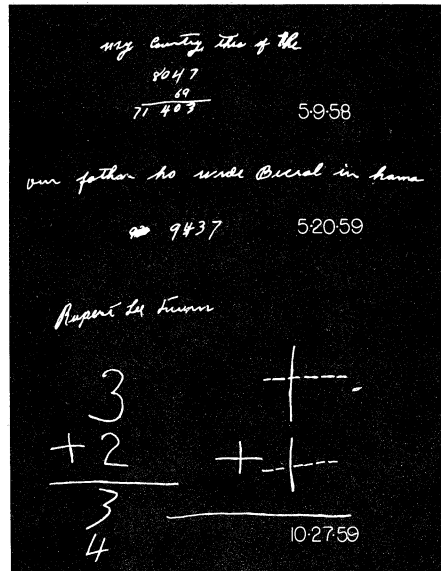 my Country, this of the
8047
69
71 403
5-9-58
our father ho in hama
9437
5-20-59
Rupert Lee
3
+2
3
4
+
10-27-59